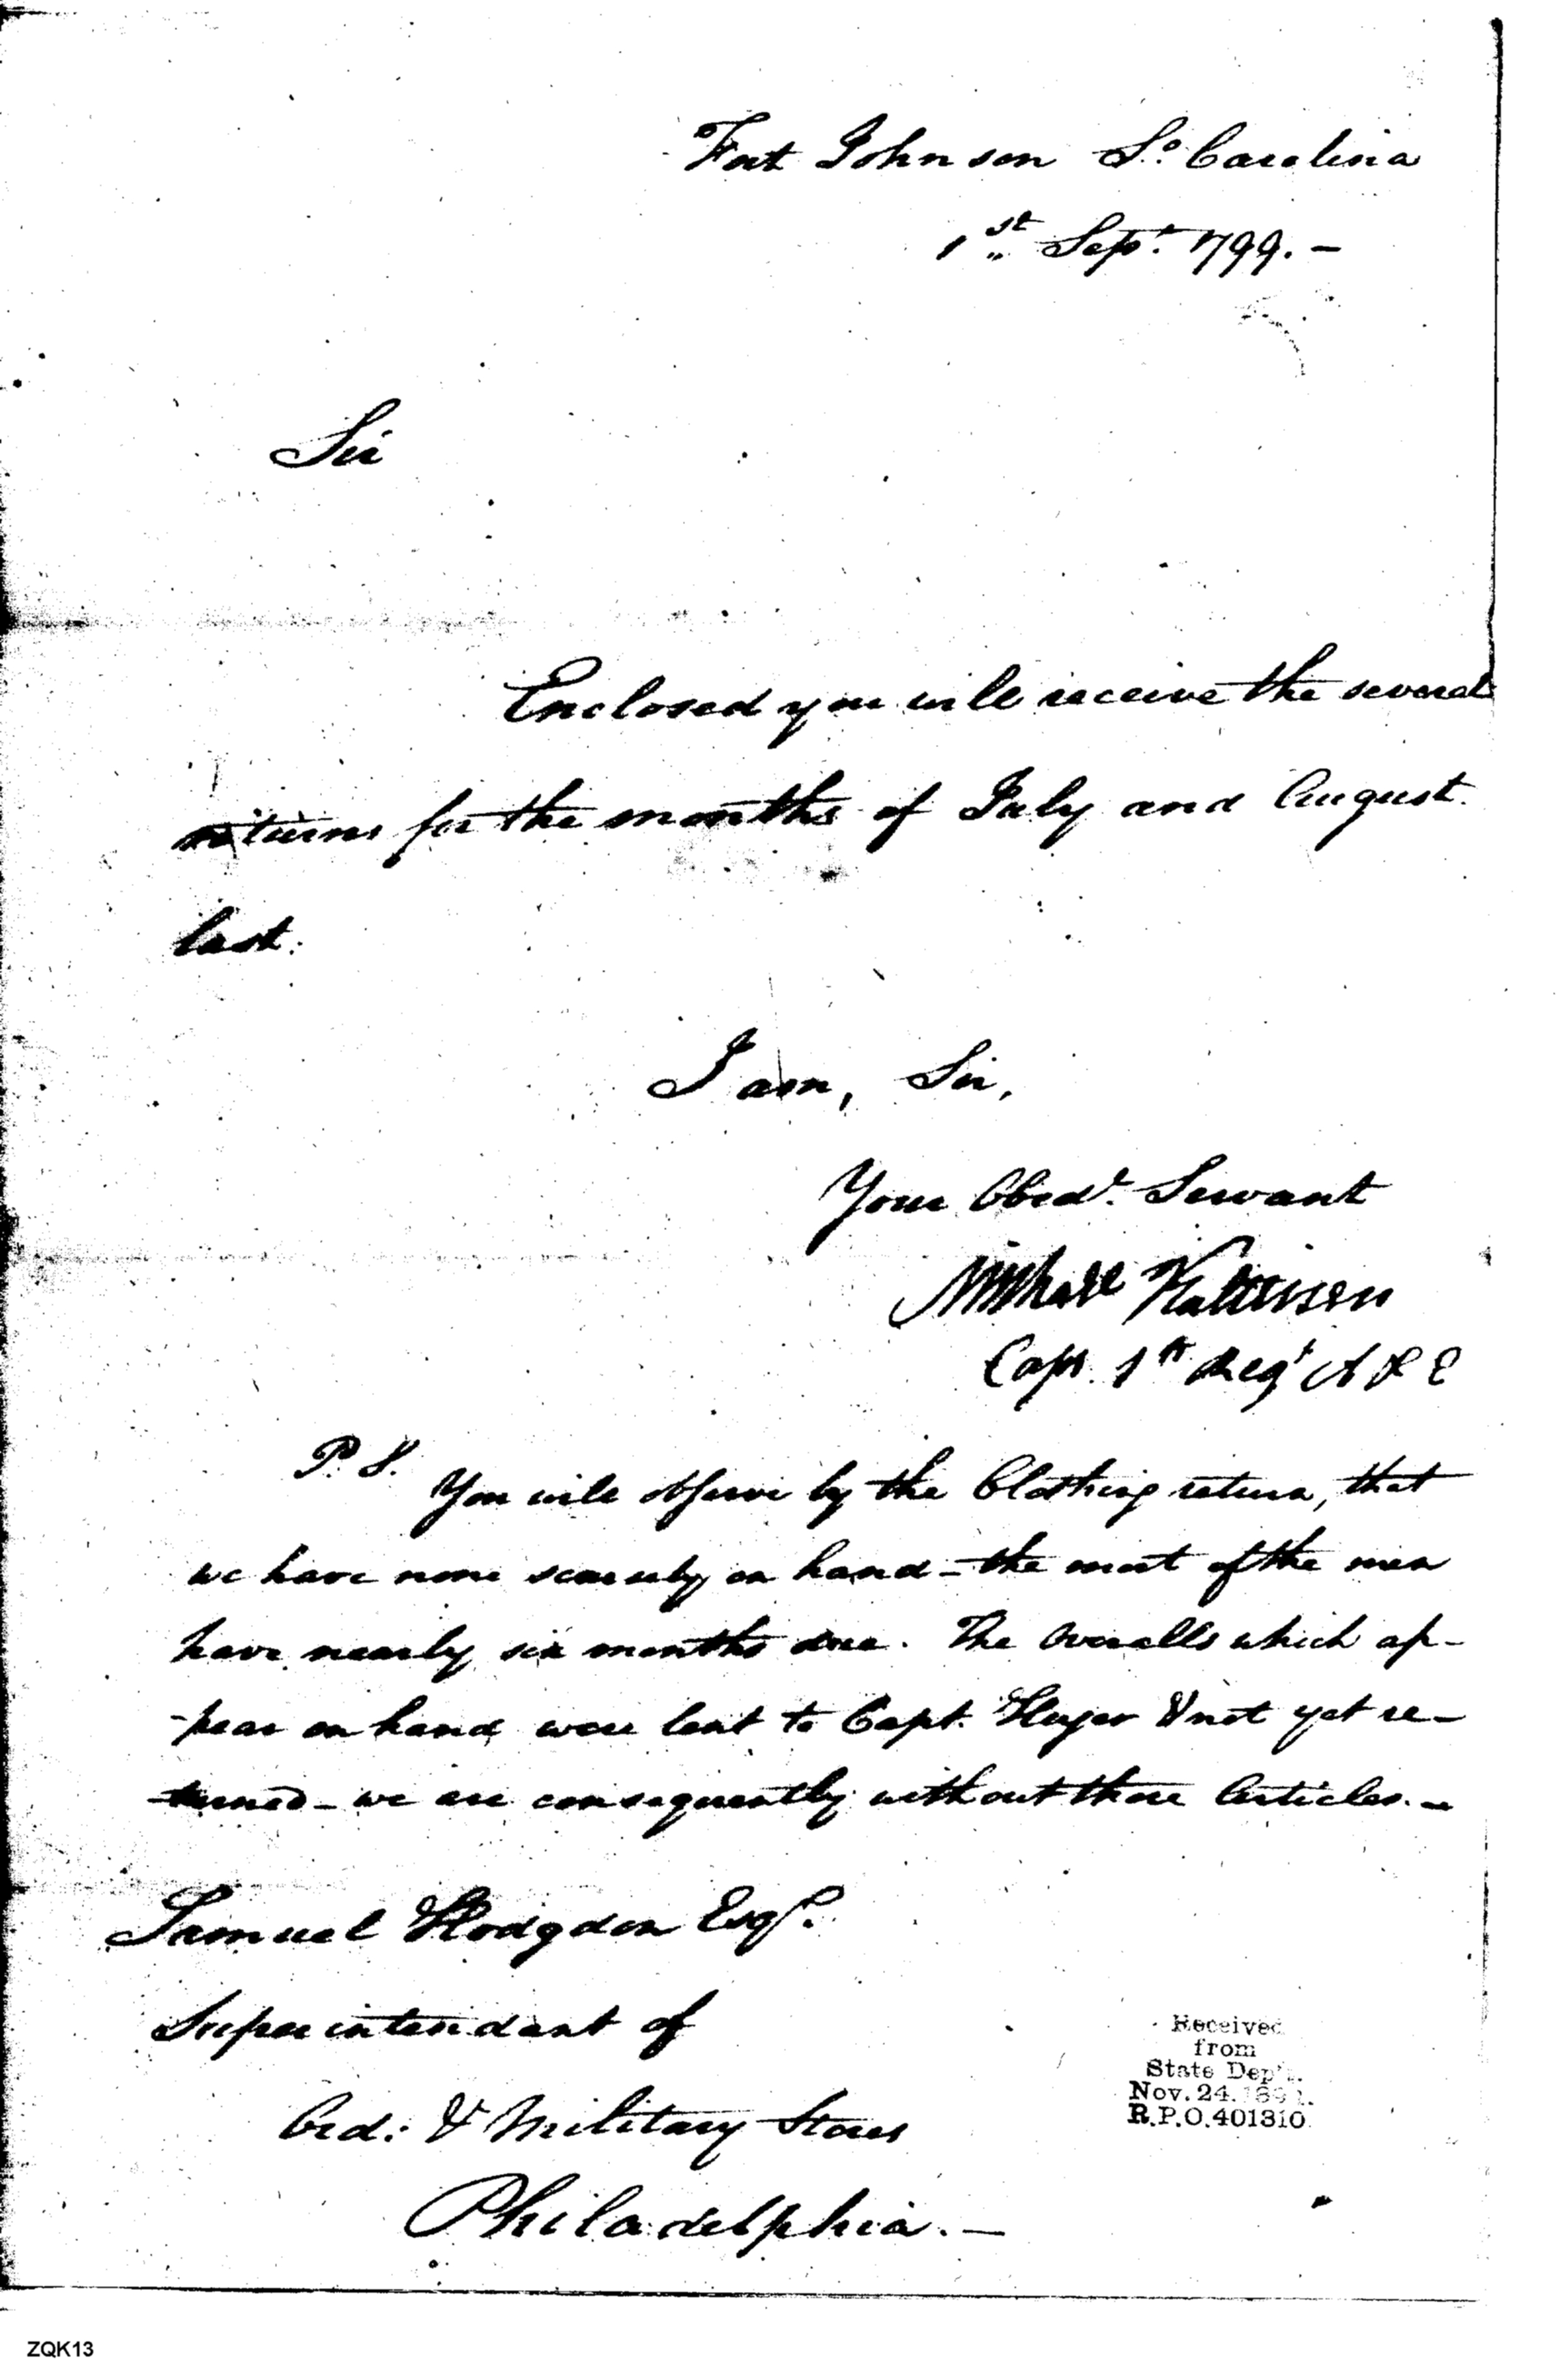 Fort Johnson So. Carolina
1st Sept. 1799. -
Sir
Enclosed you will receive the several
returns for the months of July and August
last.
I am, Sir,
Your Obedt. Servant
Michael Kalteisen
Capt. 1st Regt A & E
P. S.
You will observe by the Clothing return, that
we have none scarcely on hand - the most of the men
have nearly six months due. The Overalls which ap-
-pear on hand were lent to Capt. Huger & not yet re-
turned - we are consequently without those Articles. -
Samuel Hodgdon Esqr.
Superintendant of
Ord: & Military Stores
Philadelphia. -
Received
from
State Dep't.
Nov. 24.
R.P.O. 401310
ZQK13